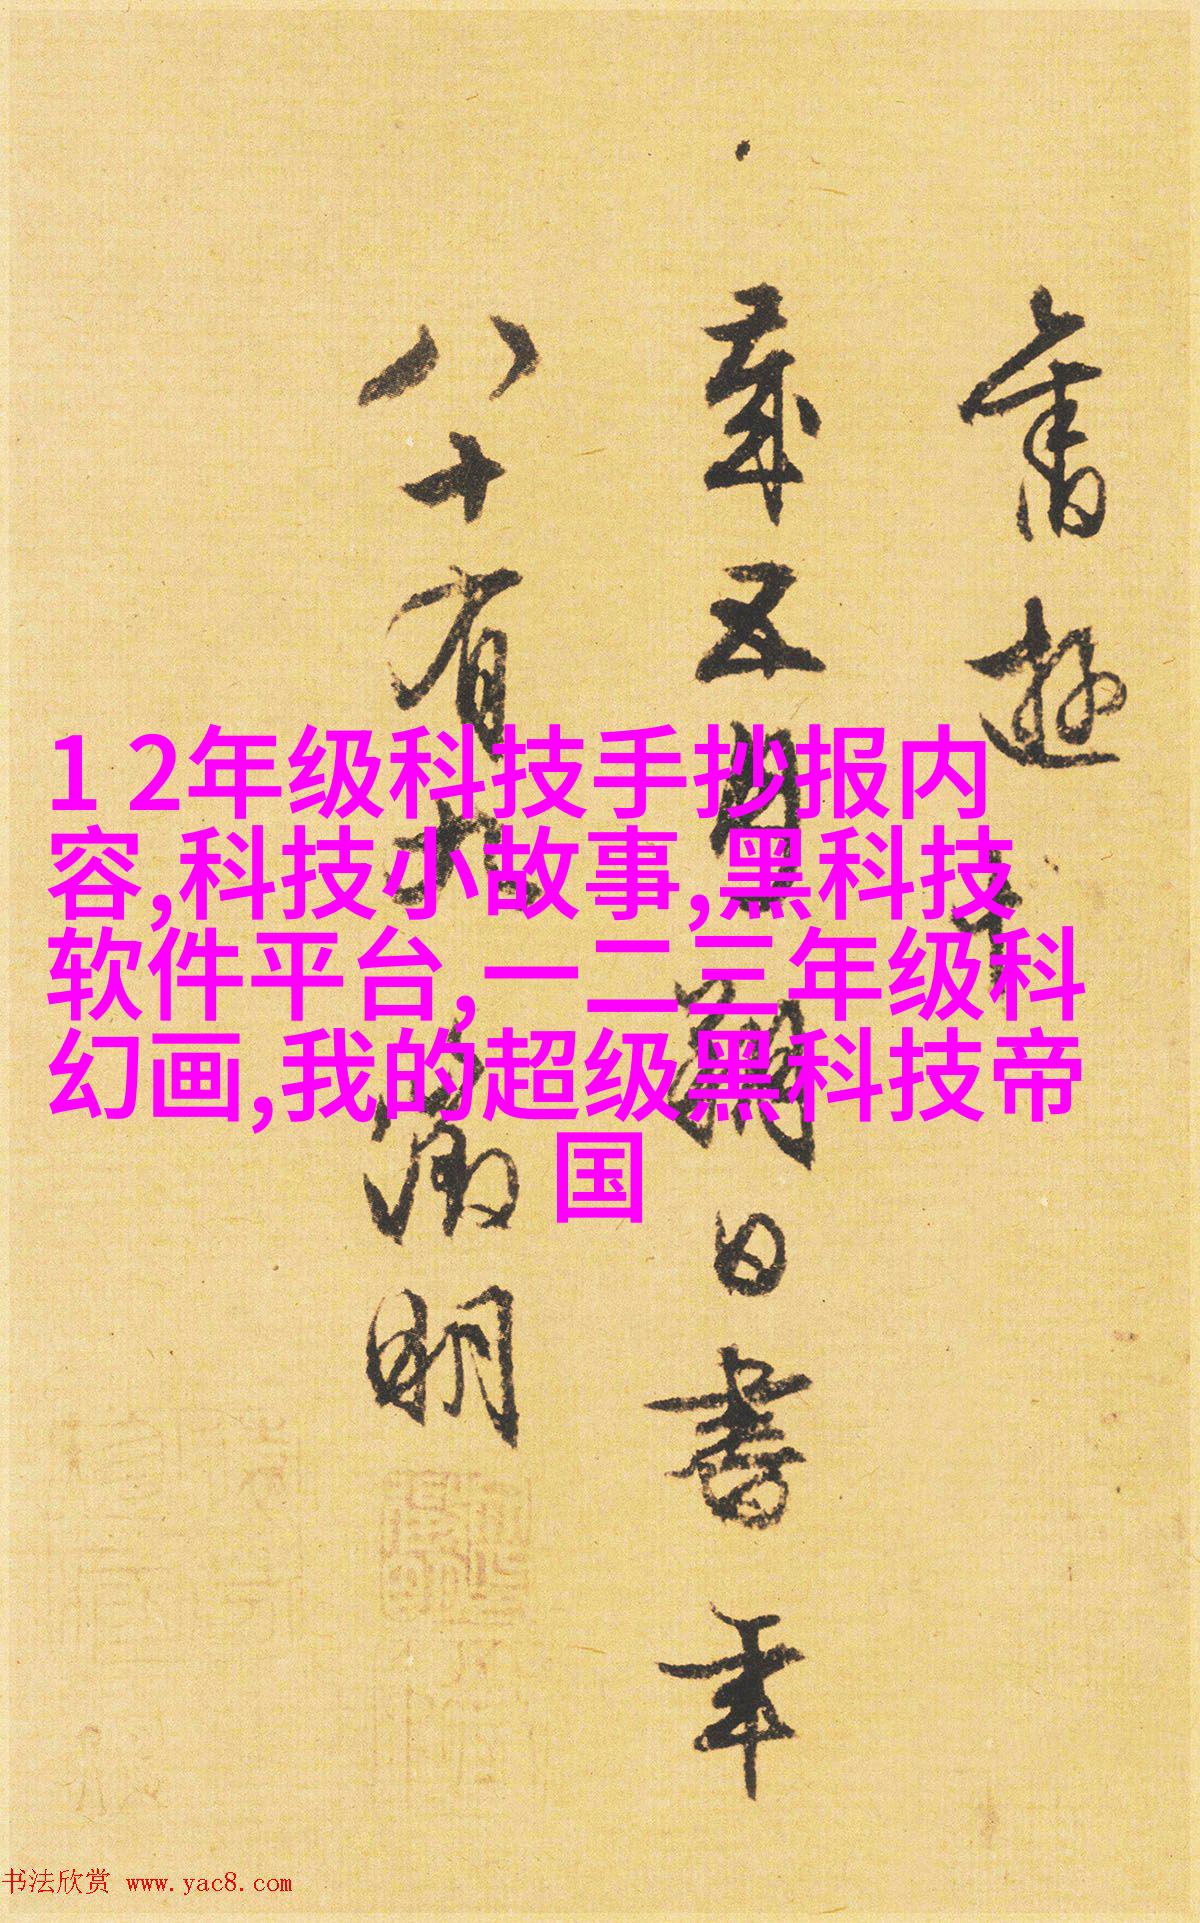 舊遊
歲五月朔日書年
八十有九 徵明
1 2年级科技手抄报内
容,科技小故事,黑科技
软件平台,一二三年级科
幻画,我的超级黑科技帝
国
书法欣赏 www.yac8.com